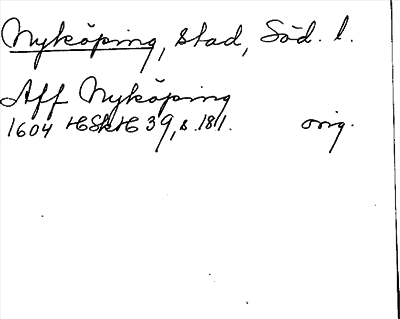 Nyköping, stad, Söd. l.
Aff Nyköping
1604 HSkH 39, s. 181. orig.